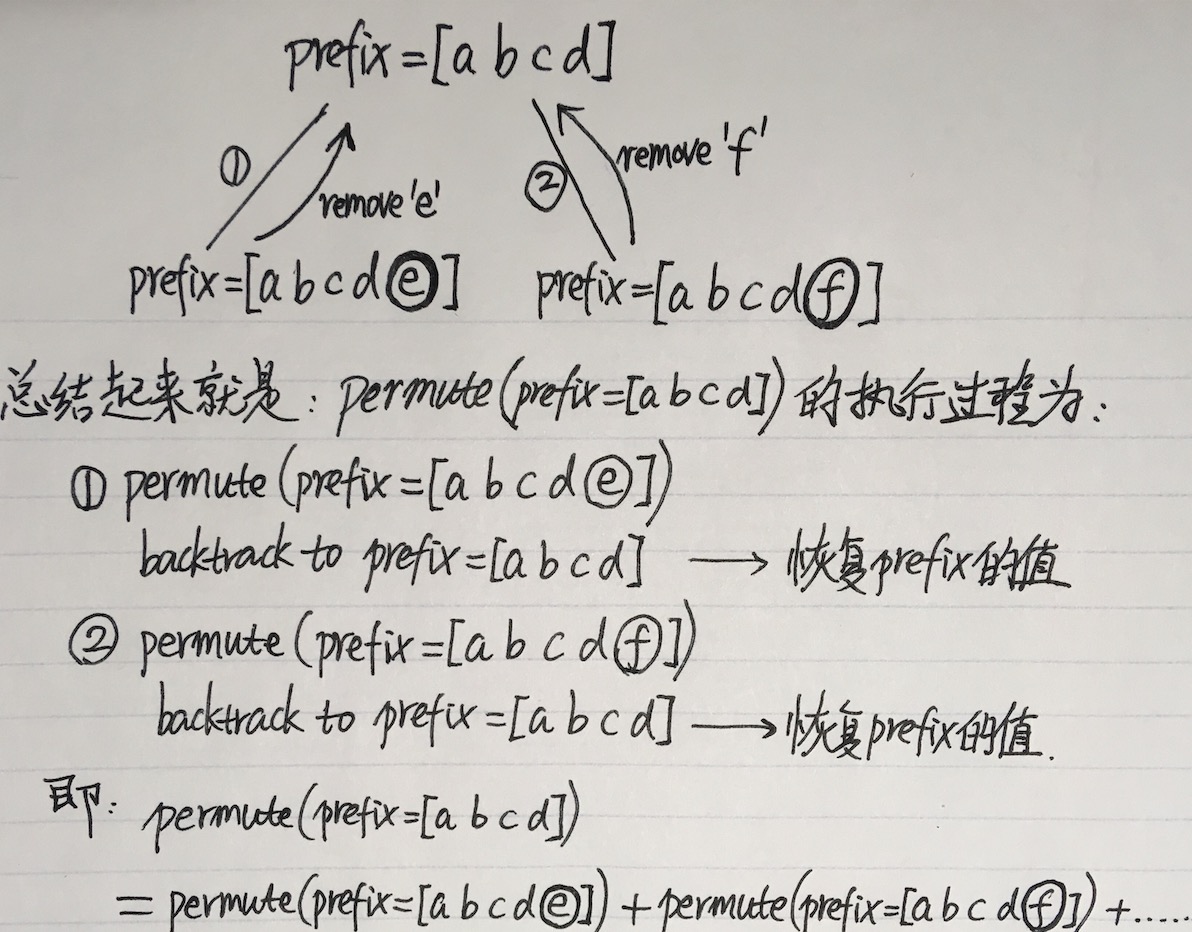 prefix=[a b c d]
① remove 'e' ② remove 'f'
prefix=[a b c d ⓔ] prefix=[a b c d ⓕ]
总结起来就是: permute(prefix=[a b c d]) 的执行过程为:
① permute (prefix=[a b c d ⓔ])
backtrack to prefix=[a b c d] → 恢复prefix的值
② permute (prefix=[a b c d ⓕ])
backtrack to prefix=[a b c d] → 恢复prefix的值.
即: permute(prefix=[a b c d])
= permute(prefix=[a b c d ⓔ]) + permute(prefix=[a b c d ⓕ]) + ......